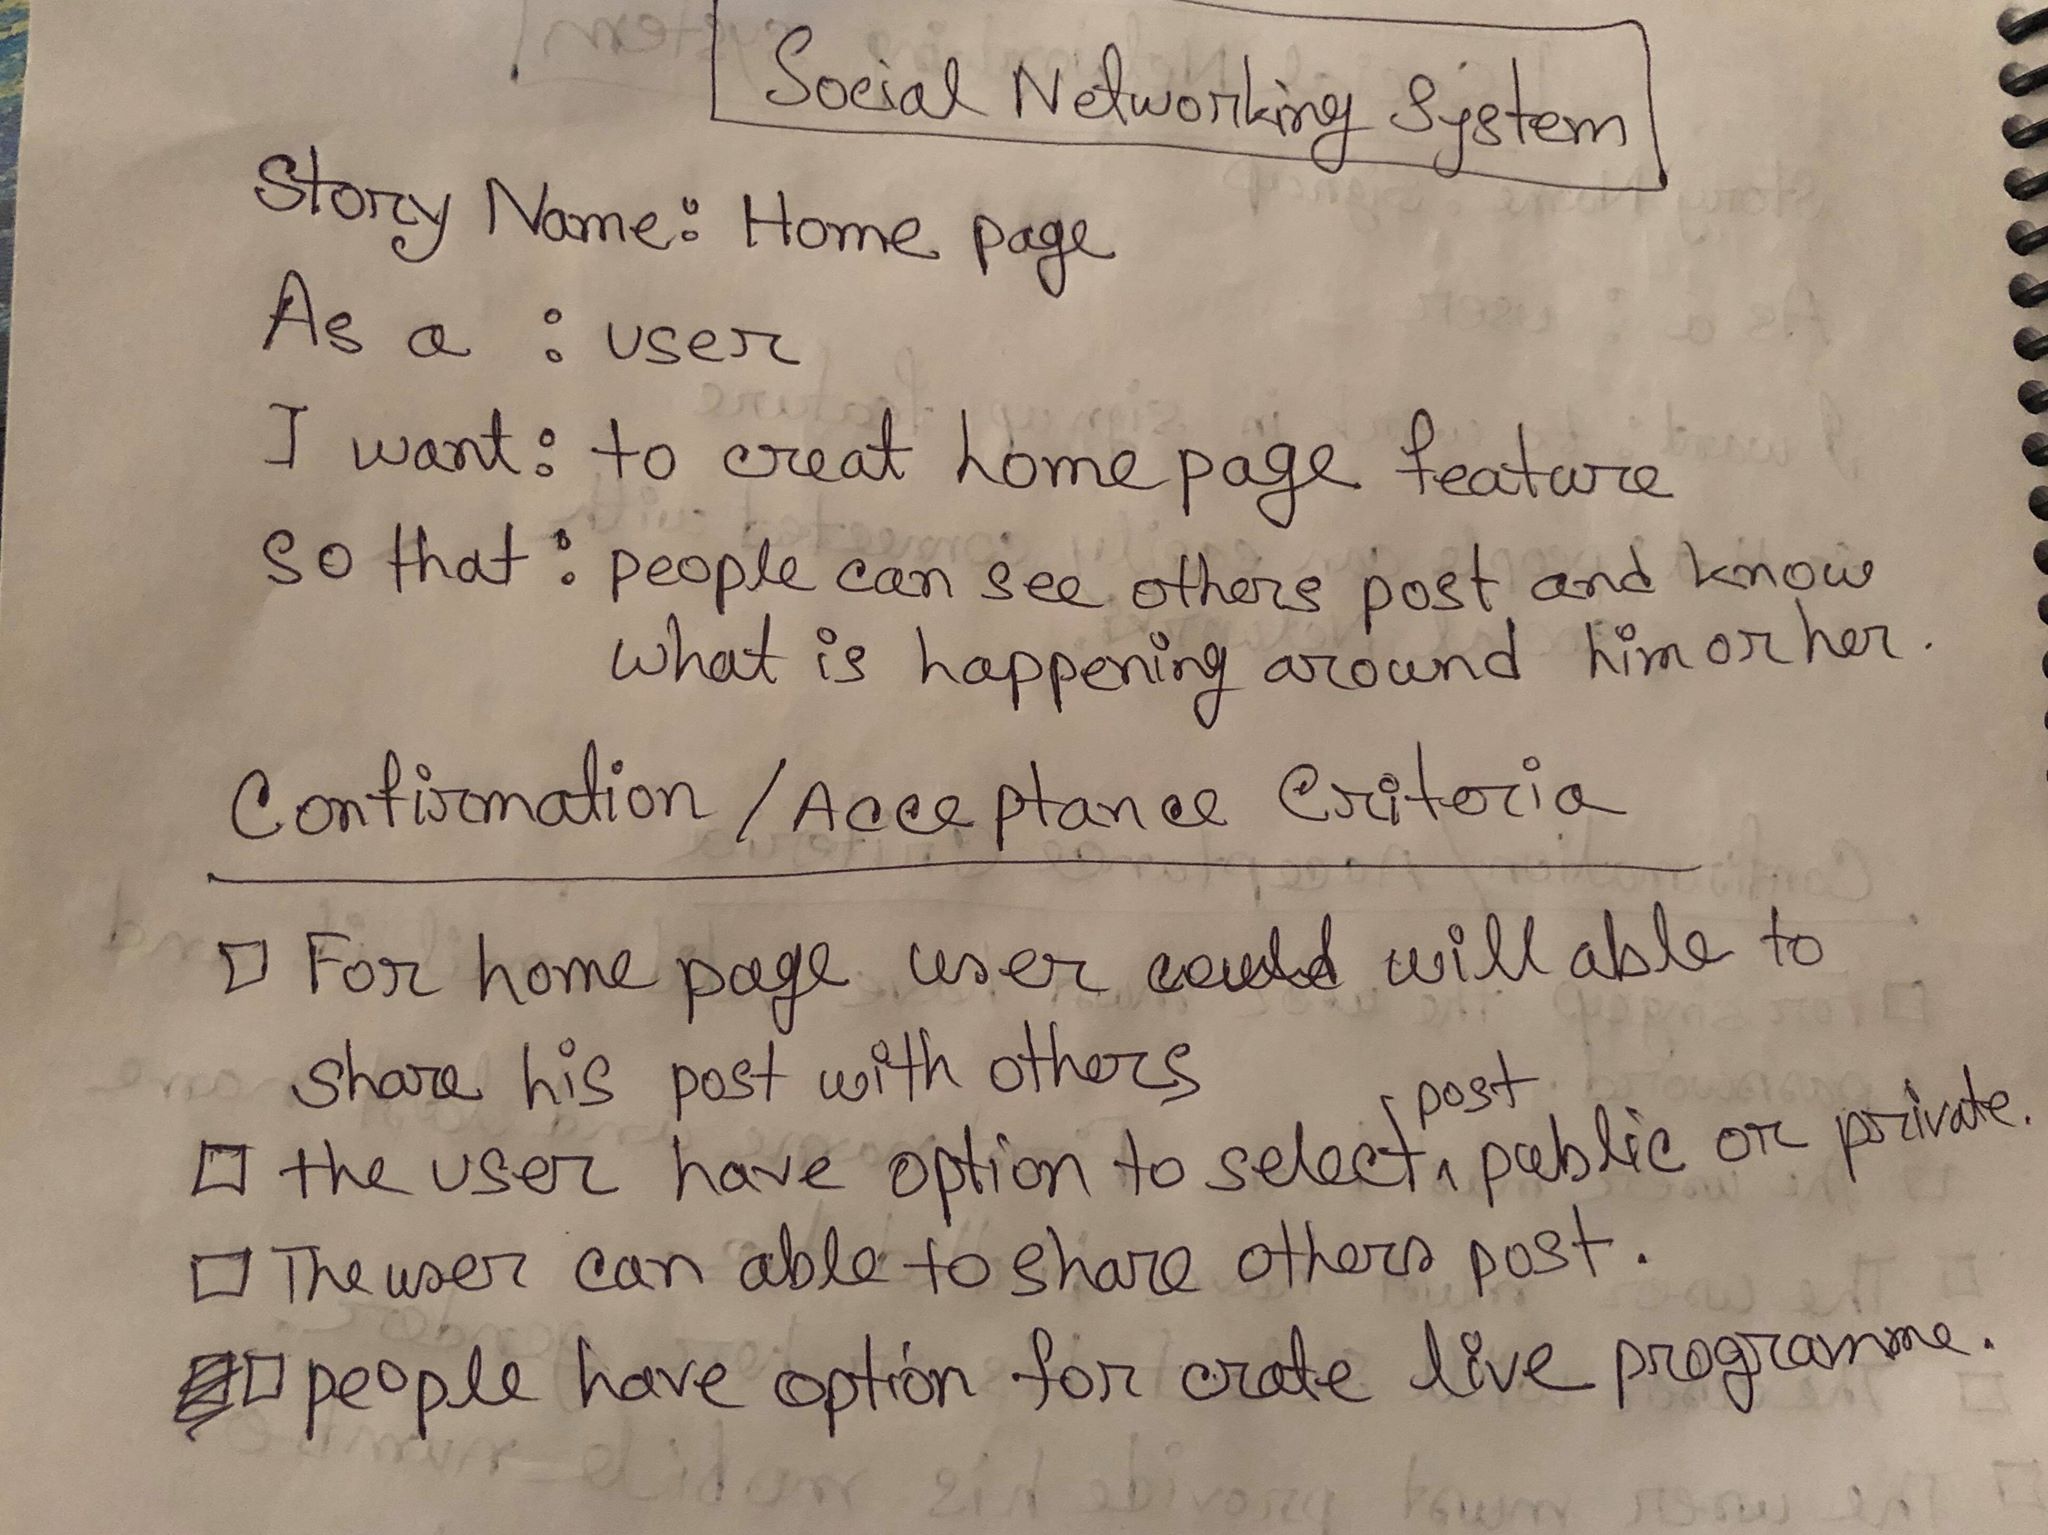 Social Networking System
Story Name: Home page
As a : user
I want: to creat home page feature
So that: people can see others post and know
what is happening around him or her.
Confirmation / Acceptance Criteria
For home page user could will able to
share his post with others
the user have option to select post public or private.
The user can able to share others post.
people have option for crate live programme.